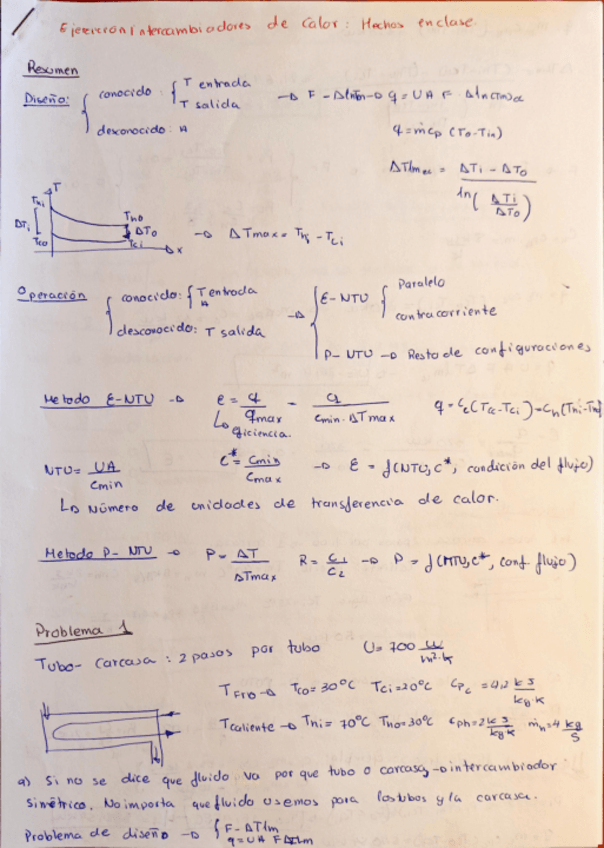 Ejercicios Intercambiadores de Calor: Hechos en clase
Resumen
Diseño: { conocido: { T entrada
T salida → F - Δlntm → q = UA F · Δln(Tm)cc
desconocido: A
q = ṁcp (To - Tin)
ΔTlmcc = ΔTi - ΔTo / ln(ΔTi/ΔTo)
T
Thi
Tho
ΔTi ΔTo → ΔTmax = Thi - Tci
Tco Tci x
Operación { conocido: { T entrada
A
desconocido: T salida → { E-NTU { Paralelo
contracorriente
P-NTU → Resto de configuraciones
Metodo E-NTU → ε = q/qmax = q/Cmin·ΔTmax q = Cc(Tco-Tci) = Ch(Thi-Tho)
↳ eficiencia.
NTU = UA/Cmin C* = Cmin/Cmax → ε = f(NTU, C*, condición del flujo)
↳ Número de unidades de transferencia de calor.
Metodo P-NTU → P = ΔT/ΔTmax R = C1/C2 → P = f(NTU, C*, conf. flujo)
Problema 1
Tubo-carcasa: 2 pasos por tubo U = 700 W/m²·k
TFrio → Tco = 30°C Tci = 20°C Cpc = 4,2 kJ/kg·k
Tcaliente → Thi = 70°C Tho = 30°C Cph = 2 kJ/kg k ṁh = 4 kg/s
a) Si no se dice que fluido va por que tubo o carcasa, → intercambiador
simétrico. No importa que fluido usemos para los tubos y la carcasa.
Problema de diseño → { F - ΔTlm
q = UA F ΔTlm